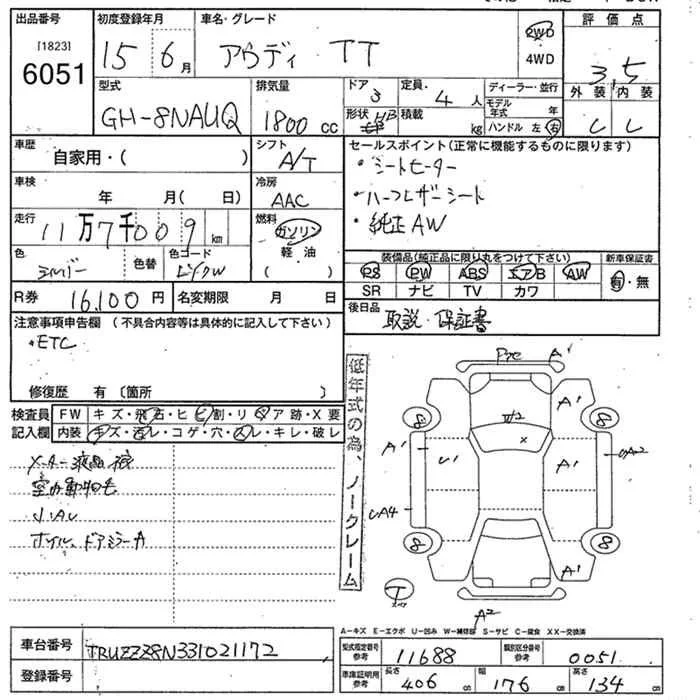 出品番号 初度登録年月 車名・グレード 評価点
[1823]
6051 15 6月 アウディ TT 2WD 3.5
4WD
型式 排気量 ドア 定員 ディーラー・並行 外装 内装
GH-8NAUQ 1800cc 3 4人 モデル年式 年
形状 HB 積載 kg ハンドル 左 右 C C
車歴 シフト セールスポイント(正常に機能するものに限ります)
自家用・( ) A/T ・シートヒーター
車検 冷房 ・ハーフレザーシート
年 月( 日) AAC ・純正AW
走行 燃料
11万7千009km ガソリン
軽・油
( )
色 色替 色コード 装備品(純正品に限り丸をつけて下さい) 新車保証書
シルバー PS PW ABS エアB AW 有・無
SR ナビ TV カワ
R券 16,100円 名変期限 月 日 後日品
取説・保証書
注意事項申告欄 (不具合内容等は具体的に記入して下さい)
・ETC
修復歴 有〔箇所 〕
検査員 FW キズ・飛石・ヒビ割・リペア跡・X要
記入欄 内装 キズ・汚レ・コゲ・穴・スレ・キレ・破レ
低年式の為、ノークレーム
A'
A'
8 8
A' U' A'
A4
8 8
A'
T
A2
ホイル、ドアミラーA
A-キズ E-エクボ U-凹み W-補修跡 S-サビ C-腐食 XX-交換済
車台番号 TRUZZZ8N331021172
登録番号
型式指定番号 参考 11688 類別区分番号 参考 0051
車庫証明用 参考 長さ 406cm 幅 176cm 高さ 134cm